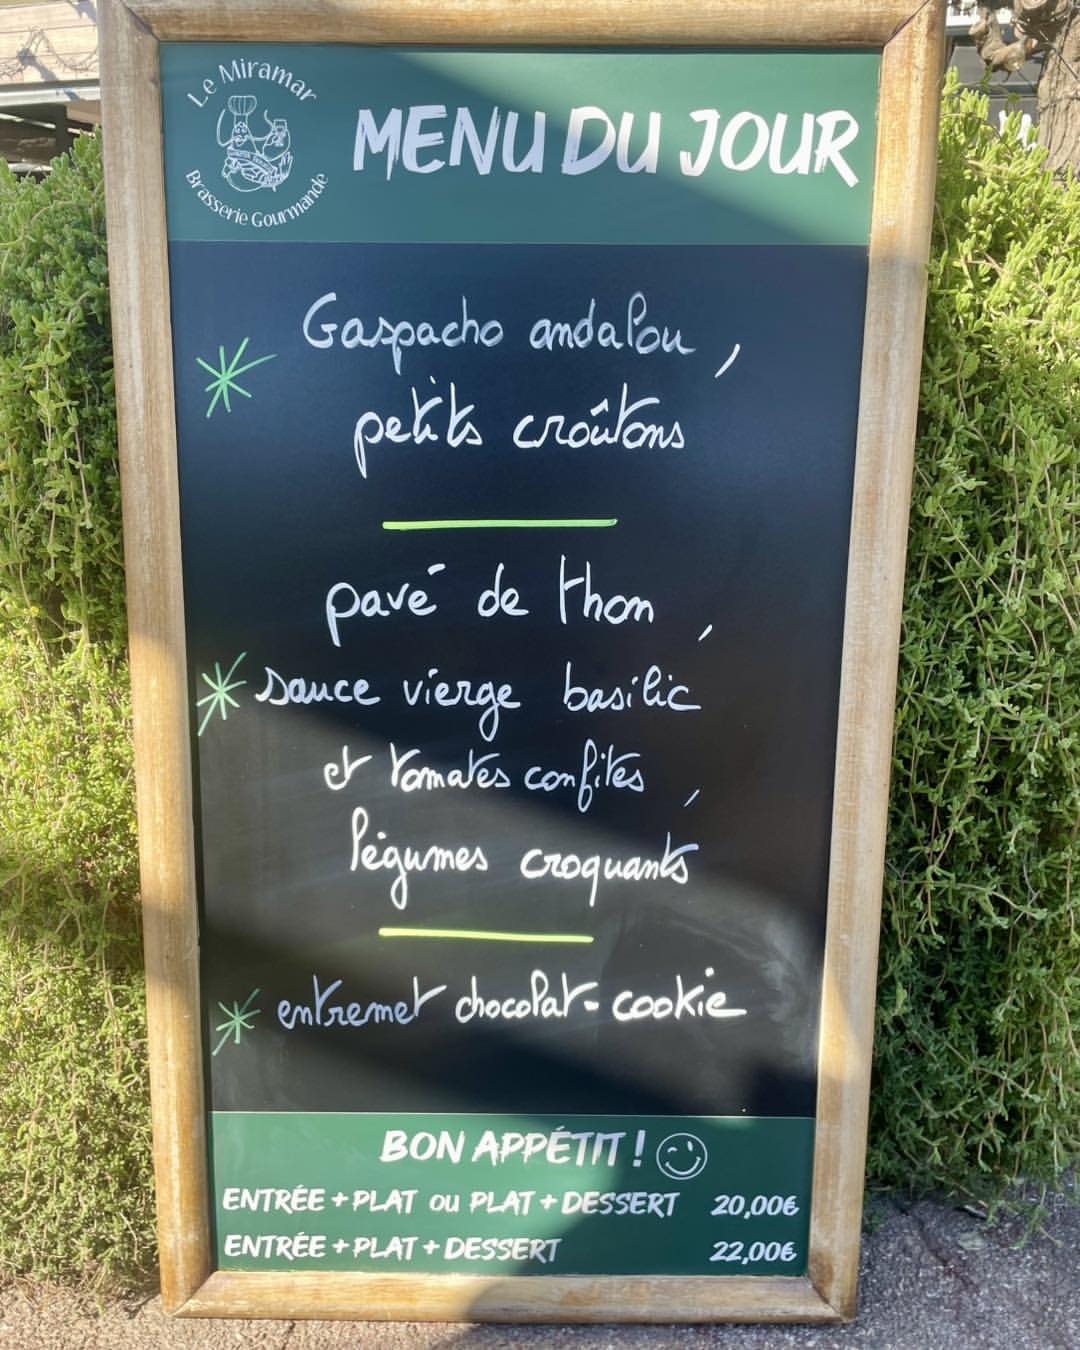 Le Miramar
Brasserie Gourmande
MENU DU JOUR
Gaspacho andalou,
petits croûtons
pavé de thon,
sauce vierge basilic
et tomates confites,
légumes croquants
entremet chocolat-cookie
BON APPÉTIT !
ENTRÉE + PLAT OU PLAT + DESSERT 20,00€
ENTRÉE + PLAT + DESSERT 22,00€